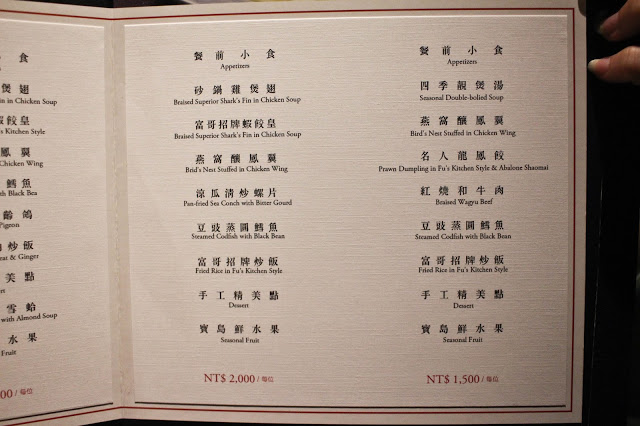 食
煲翅
Fin in Chicken Soup
蝦餃皇
's Kitchen Style
鳳翼
Chicken Wing
鱈魚
with Black Bea
齡鴿
Pigeon
炒飯
eat & Ginger
美點
rt
雪蛤
with Almond Soup
水果
Fruit
00 / 每位
餐前小食
Appetizers
砂鍋雞煲翅
Braised Superior Shark's Fin in Chicken Soup
富哥招牌蝦餃皇
Braised Superior Shark's Fin in Chicken Soup
燕窩釀鳳翼
Brid's Nest Stuffed in Chicken Wing
涼瓜清炒螺片
Pan-fried Sea Conch with Bitter Gourd
豆豉蒸圓鱈魚
Steamed Codfish with Black Bean
富哥招牌炒飯
Fried Rice in Fu's Kitchen Style
手工精美點
Dessert
寶島鮮水果
Seasonal Fruit
NT$ 2,000 / 每位
餐前小食
Appetizers
四季靚煲湯
Seasonal Double-bolied Soup
燕窩釀鳳翼
Bird's Nest Stuffed in Chicken Wing
名人龍鳳餃
Prawn Dumpling in Fu's Kitchen Style & Abalone Shaomai
紅燒和牛肉
Braised Wagyu Beef
豆豉蒸圓鱈魚
Steamed Codfish with Black Bean
富哥招牌炒飯
Fried Rice in Fu's Kitchen Style
手工精美點
Dessert
寶島鮮水果
Seasonal Fruit
NT$ 1,500 / 每位